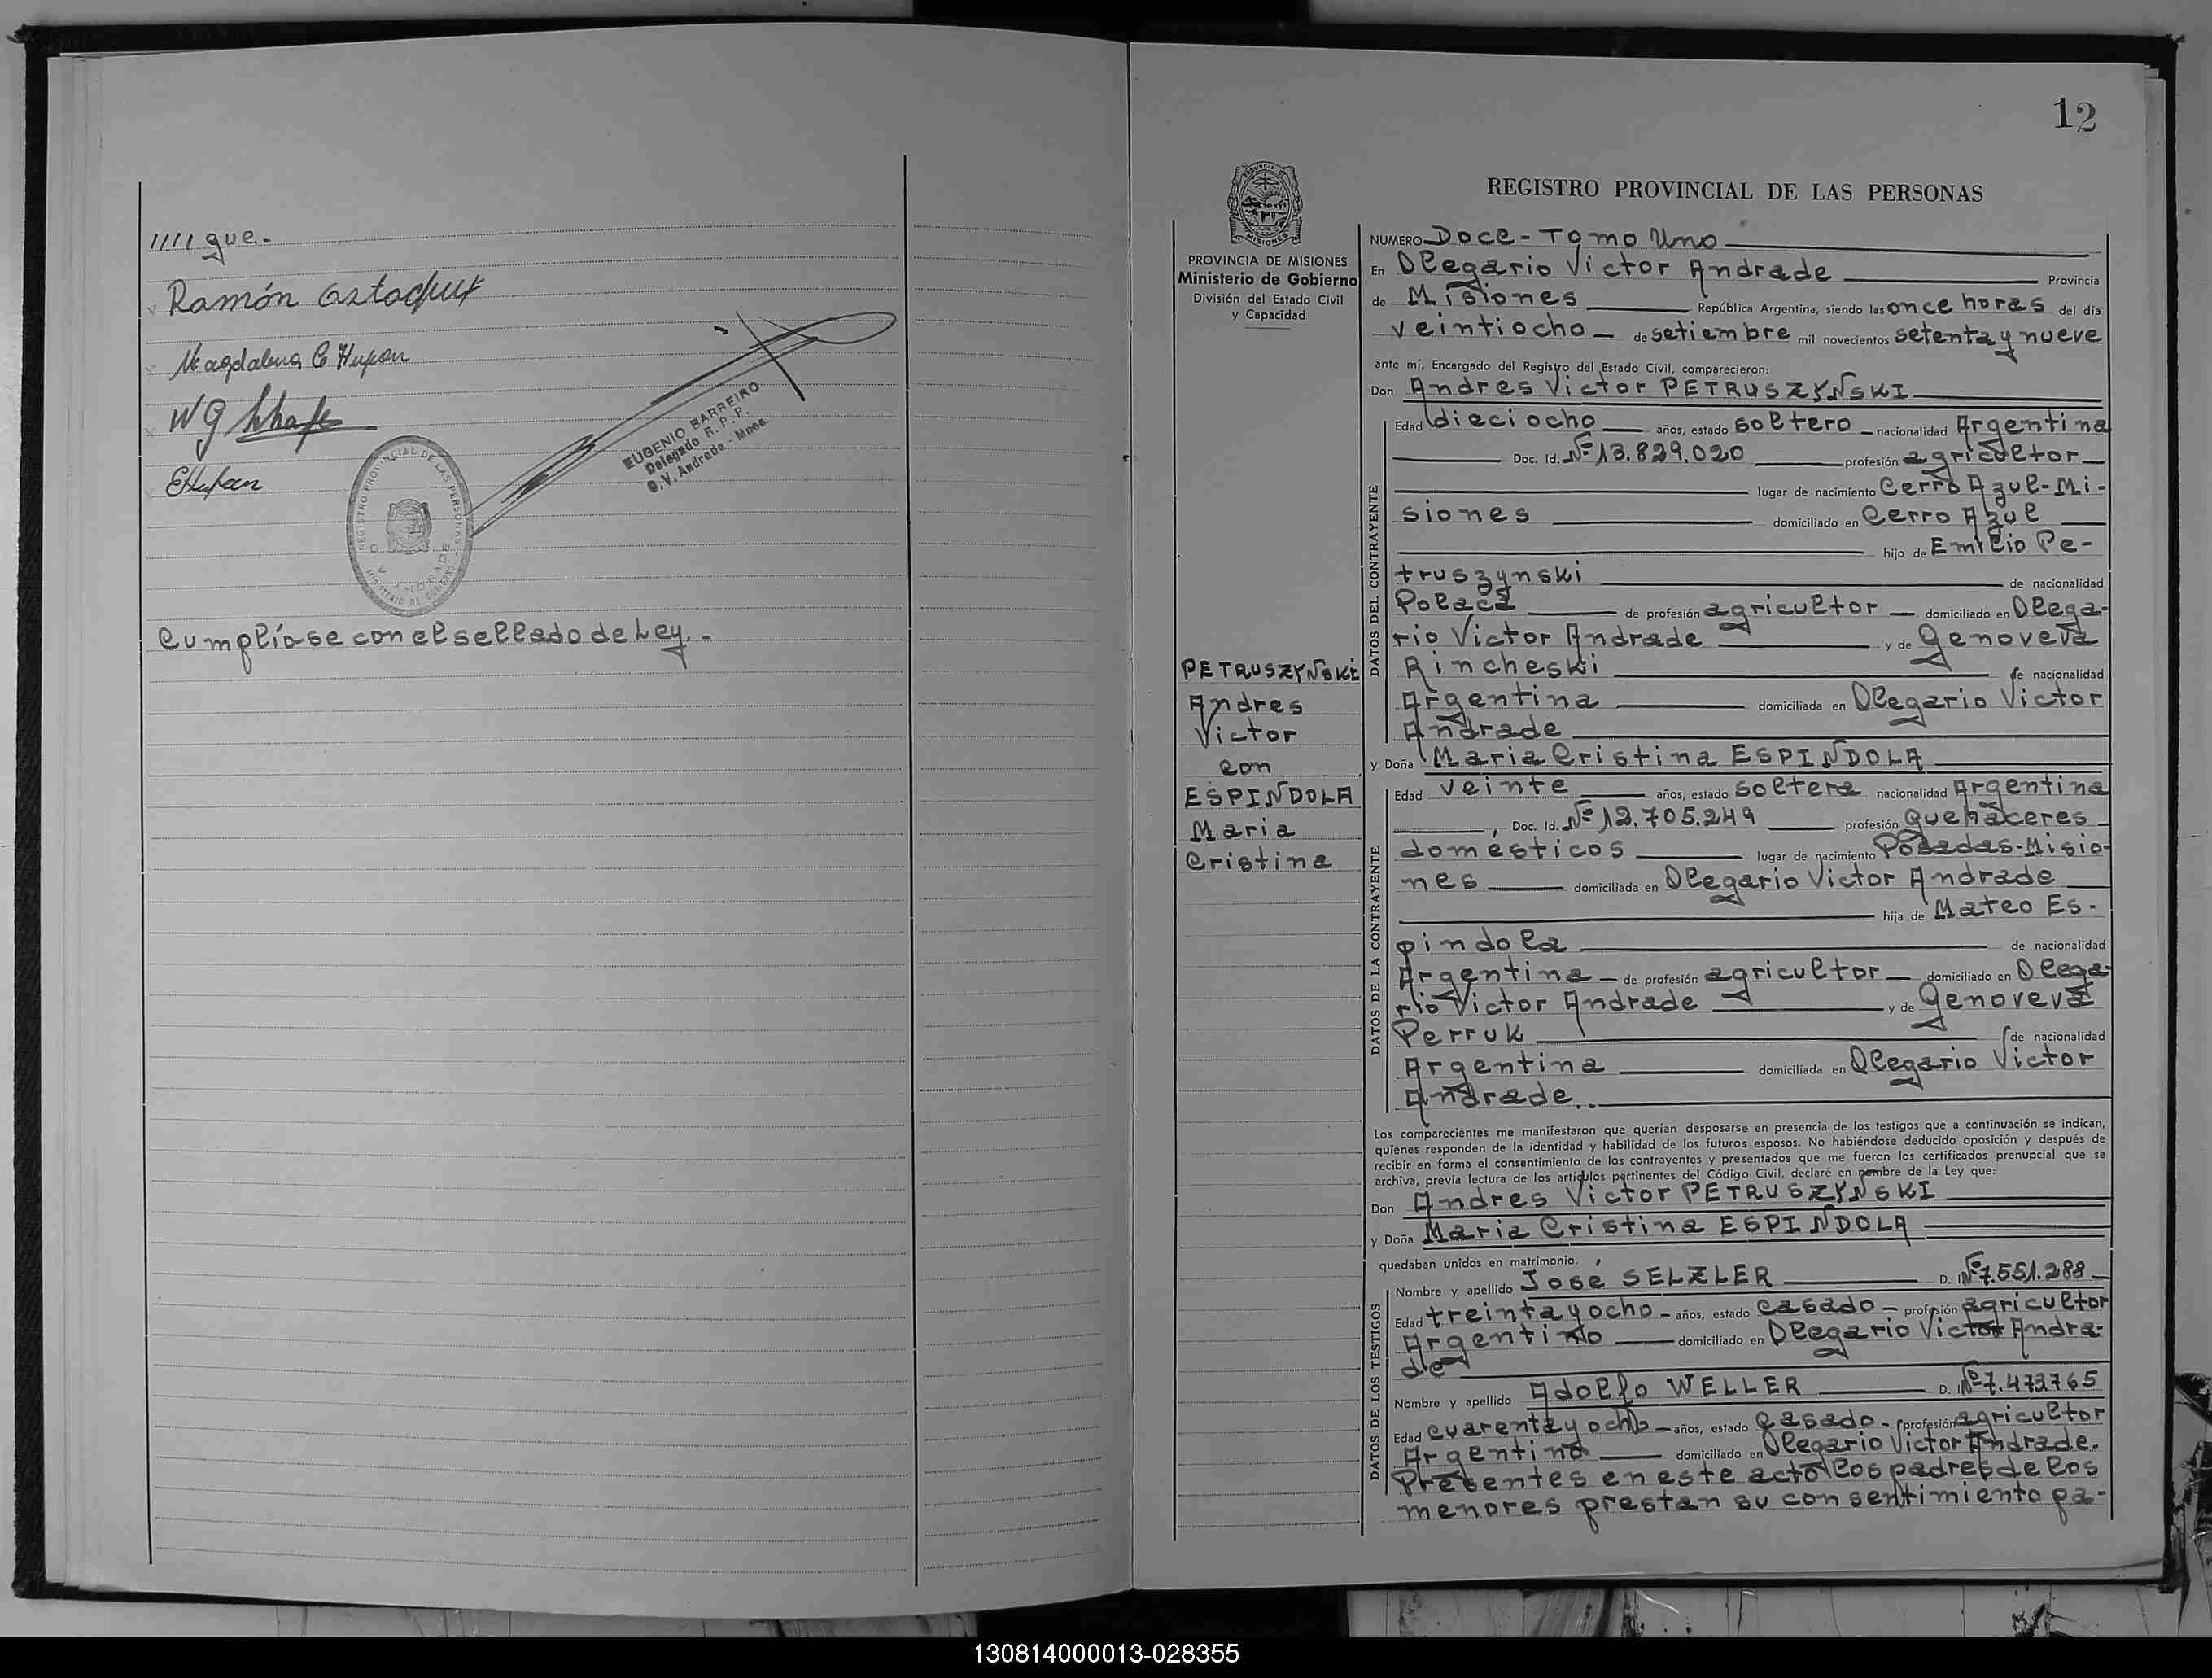 //// que.-
Ramón
Magdalena C Hupan
WG
EHupan
EUGENIO BARREIRO
Delegado R. P. P.
O. V. Andrade - Mnes.
REGISTRO PROVINCIAL DE LAS PERSONAS
O. V. ANDRADE
MINISTERIO DE GOBIERNO
Cumplíose con el sellado de Ley.-
12
PROVINCIA DE MISIONES
Ministerio de Gobierno
División del Estado Civil
y Capacidad
PETRUSZYÑSKI
Andres
Victor
con
ESPIÑDOLA
Maria
Cristina
REGISTRO PROVINCIAL DE LAS PERSONAS
NUMERO Doce - Tomo Uno
En Olegario Victor Andrade Provincia
de Misiones República Argentina, siendo las once horas del día
veintiocho de setiembre mil novecientos setenta y nueve
ante mí, Encargado del Registro del Estado Civil, comparecieron:
Don Andres Victor PETRUSZYÑSKI
DATOS DEL CONTRAYENTE
Edad dieciocho años, estado soltero nacionalidad Argentina
Doc. Id. Nº 13.829.020 profesión agricultor
lugar de nacimiento Cerro Azul-Mi-
siones domiciliado en Cerro Azul
hijo de Emilio Pe-
truszynski de nacionalidad
Polaca de profesión agricultor domiciliado en Olega-
rio Victor Andrade y de Genoveva
Rincheski de nacionalidad
Argentina domiciliada en Olegario Victor
Andrade
y Doña Maria Cristina ESPIÑDOLA
DATOS DE LA CONTRAYENTE
Edad veinte años, estado soltera nacionalidad Argentina
Doc. Id. Nº 12.705.249 profesión quehaceres
domésticos lugar de nacimiento Posadas-Misio-
nes domiciliada en Olegario Victor Andrade
hija de Mateo Es-
pindola de nacionalidad
Argentina de profesión agricultor domiciliado en Olega-
rio Victor Andrade y de Genoveva
Perruk de nacionalidad
Argentina domiciliada en Olegario Victor
Andrade..
Los comparecientes me manifestaron que querían desposarse en presencia de los testigos que a continuación se indican,
quienes responden de la identidad y habilidad de los futuros esposos. No habiéndose deducido oposición y después de
recibir en forma el consentimiento de los contrayentes y presentados que me fueron los certificados prenupcial que se
archiva, previa lectura de los artículos pertinentes del Código Civil, declaré en nombre de la Ley que:
Don Andres Victor PETRUSZYÑSKI
y Doña Maria Cristina ESPIÑDOLA
quedaban unidos en matrimonio.
DATOS DE LOS TESTIGOS
Nombre y apellido José SELZLER D. I. Nº 7.551.288
Edad treinta y ocho años, estado casado profesión agricultor
Argentino domiciliado en Olegario Victor Andra-
de
Nombre y apellido Adolfo WELLER D. I. Nº 7.473765
Edad cuarenta y ocho años, estado casado profesión agricultor
Argentino domiciliado en Olegario Victor Andrade.
Presentes en este acto los padres de los
menores prestan su consentimiento pa-
130814000013-028355